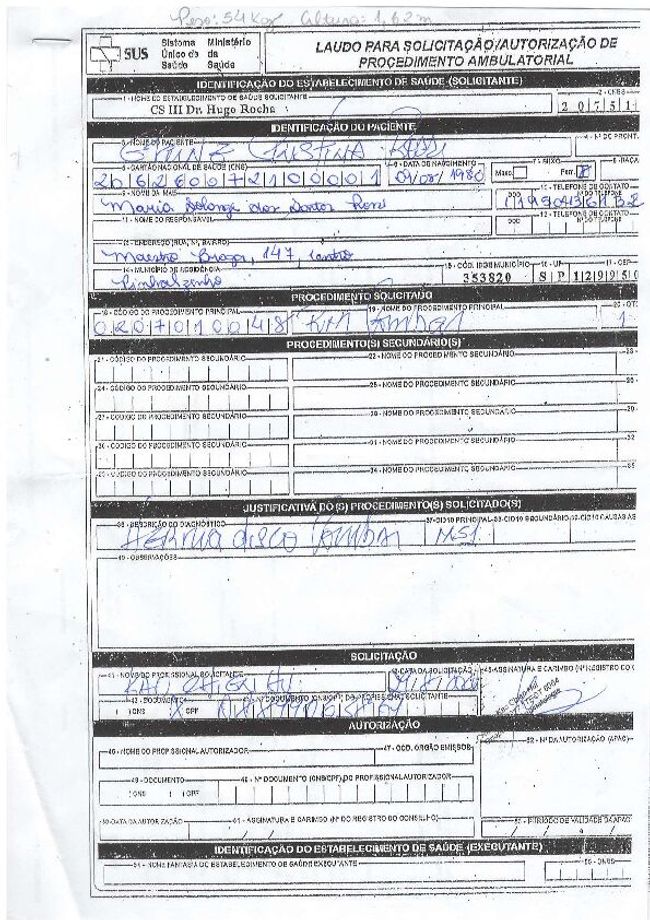 Peso: 54 Kg Altura: 1,62 m
SUS Sistema Único de Saúde Ministério da Saúde
LAUDO PARA SOLICITAÇÃO/AUTORIZAÇÃO DE PROCEDIMENTO AMBULATORIAL
IDENTIFICAÇÃO DO ESTABELECIMENTO DE SAÚDE (SOLICITANTE)
1 - NOME DO ESTABELECIMENTO DE SAÚDE SOLICITANTE 2 - CNES
CS III Dr. Hugo Rocha 2 0 7 5 1
IDENTIFICAÇÃO DO PACIENTE
3 - NOME DO PACIENTE 4 - Nº DO PRONT.
CRISTINA
5 - CARTÃO NACIONAL DE SAÚDE (CNS) 6 - DATA DE NASCIMENTO 7 - SEXO 8 - RAÇA
1980 Masc. Fem.
9 - NOME DA MÃE 10 - TELEFONE DE CONTATO
DDD Nº DO TELEFONE
Maria Solange dos Santos
11 - NOME DO RESPONSÁVEL 12 - TELEFONE DE CONTATO
DDD Nº DO TELEFONE
13 - ENDEREÇO (RUA, Nº, BAIRRO)
Maestro Braga, 147, centro
14 - MUNICÍPIO DE RESIDÊNCIA 15 - CÓD. IBGE MUNICÍPIO 16 - UF 17 - CEP
Pinhalzinho 353820 S P 1 2 9 9 5 0
PROCEDIMENTO SOLICITADO
18 - CÓDIGO DO PROCEDIMENTO PRINCIPAL 19 - NOME DO PROCEDIMENTO PRINCIPAL 20 - QTD
0 2 0 7 0 1 0 0 4 8 RM lombar 1
PROCEDIMENTO(S) SECUNDÁRIO(S)
21 - CÓDIGO DO PROCEDIMENTO SECUNDÁRIO 22 - NOME DO PROCEDIMENTO SECUNDÁRIO 23
24 - CÓDIGO DO PROCEDIMENTO SECUNDÁRIO 25 - NOME DO PROCEDIMENTO SECUNDÁRIO 26
27 - CÓDIGO DO PROCEDIMENTO SECUNDÁRIO 28 - NOME DO PROCEDIMENTO SECUNDÁRIO 29
30 - CÓDIGO DO PROCEDIMENTO SECUNDÁRIO 31 - NOME DO PROCEDIMENTO SECUNDÁRIO 32
33 - CÓDIGO DO PROCEDIMENTO SECUNDÁRIO 34 - NOME DO PROCEDIMENTO SECUNDÁRIO 35
JUSTIFICATIVA DO(S) PROCEDIMENTO(S) SOLICITADO(S)
36 - DESCRIÇÃO DO DIAGNÓSTICO 37 - CID10 PRINCIPAL 38 - CID10 SECUNDÁRIO 39 - CID10 CAUSAS AS
Hérnia disco lombar M51
40 - OBSERVAÇÕES
SOLICITAÇÃO
41 - NOME DO PROFISSIONAL SOLICITANTE 42 - DATA DA SOLICITAÇÃO 45 - ASSINATURA E CARIMBO (Nº REGISTRO DO
43 - DOCUMENTO 44 - Nº DOCUMENTO (CNS/CPF) DO PROFISSIONAL SOLICITANTE
CNS CPF
AUTORIZAÇÃO
46 - NOME DO PROFISSIONAL AUTORIZADOR 47 - COD. ÓRGÃO EMISSOR 52 - Nº DA AUTORIZAÇÃO (APAC)
48 - DOCUMENTO 49 - Nº DOCUMENTO (CNS/CPF) DO PROFISSIONAL AUTORIZADOR
CNS CPF
50 - DATA DA AUTORIZAÇÃO 51 - ASSINATURA E CARIMBO (Nº DO REGISTRO DO CONSELHO) 53 - PERÍODO DE VALIDADE DA APAC
IDENTIFICAÇÃO DO ESTABELECIMENTO DE SAÚDE (EXECUTANTE)
54 - NOME FANTASIA DO ESTABELECIMENTO DE SAÚDE EXECUTANTE 55 - CNES